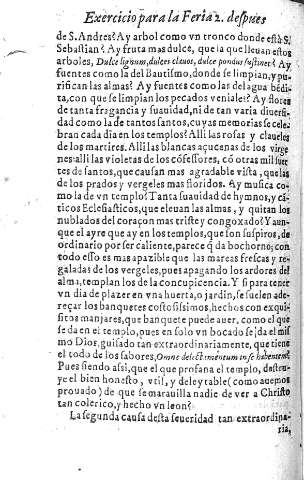 Exercicio para la Feria 2. despues
de S. Andres? Ay arbol como vn tronco donde està S.
Sebastian? Ay fruta mas dulce, que la que lleuan estos
arboles, Dulce lignum, dulces clauos, dulce pondus sustinet? Ay
fuentes como la del Bautismo, donde se limpian, y pu-
rifican las almas? Ay fuentes como las del agua bēdi-
ta, con que se limpian los pecados veniales? Ay flores
de tanta fragancia y suauidad, ni de tan varia diuersi-
dad como la de tantos santos, cuyas memorias se cele-
bran cada dia en los templos? Alli las rosas y claueles
de los martires. Alli las blancas açucenas de los virge
nes: alli las violetas de los cōfessores, cō otras mil suer
tes de santos, que causan mas agradable vista, que las
de los prados y vergeles mas floridos. Ay musica co-
mo la de vn templo? Tanta suauidad de hymnos, y cā-
ticos Eclesiasticos, que eleuan las almas, y quitan los
nublados del coraçon mas triste y congoxado? Y aun-
que el ayre que ay en los templos, que son suspiros, de
ordinario por ser caliente, parece q̄ da bochorno; con
todo esso es mas apazible que las mareas frescas y re-
galadas de los vergeles, pues apagando los ardores del
alma, templan los de la concupicencia. Y si para tener
vn dia de plazer en vna huerta, o jardin, se suelen ade-
reçar los banquetes costosissimos, hechos con exqui-
sitos manjares, que banquete puede auer, como el que
se da en el templo, pues en solo vn bocado se da el mis
mo Dios, guisado tan extraordinariamente, que tiene
el todo de los sabores, Omne delectamentum in se habentem?
Pues siendo assi, que el que profana el templo, destru-
ye el bien honesto, vtil, y deleytable (como auemos
prouado) de que se marauilla nadie de ver a Christo
tan colerico, y hecho vn leon?
La segunda causa desta seueridad tan extraordina-
ria,